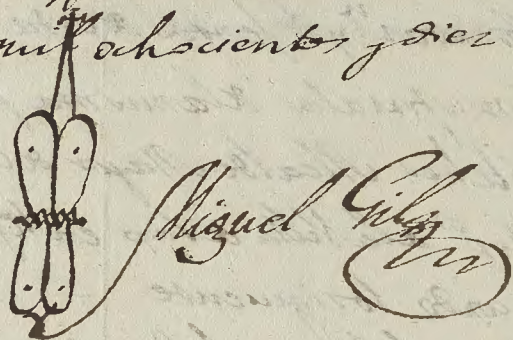 mil ochocientos y diez
Miguel Gil